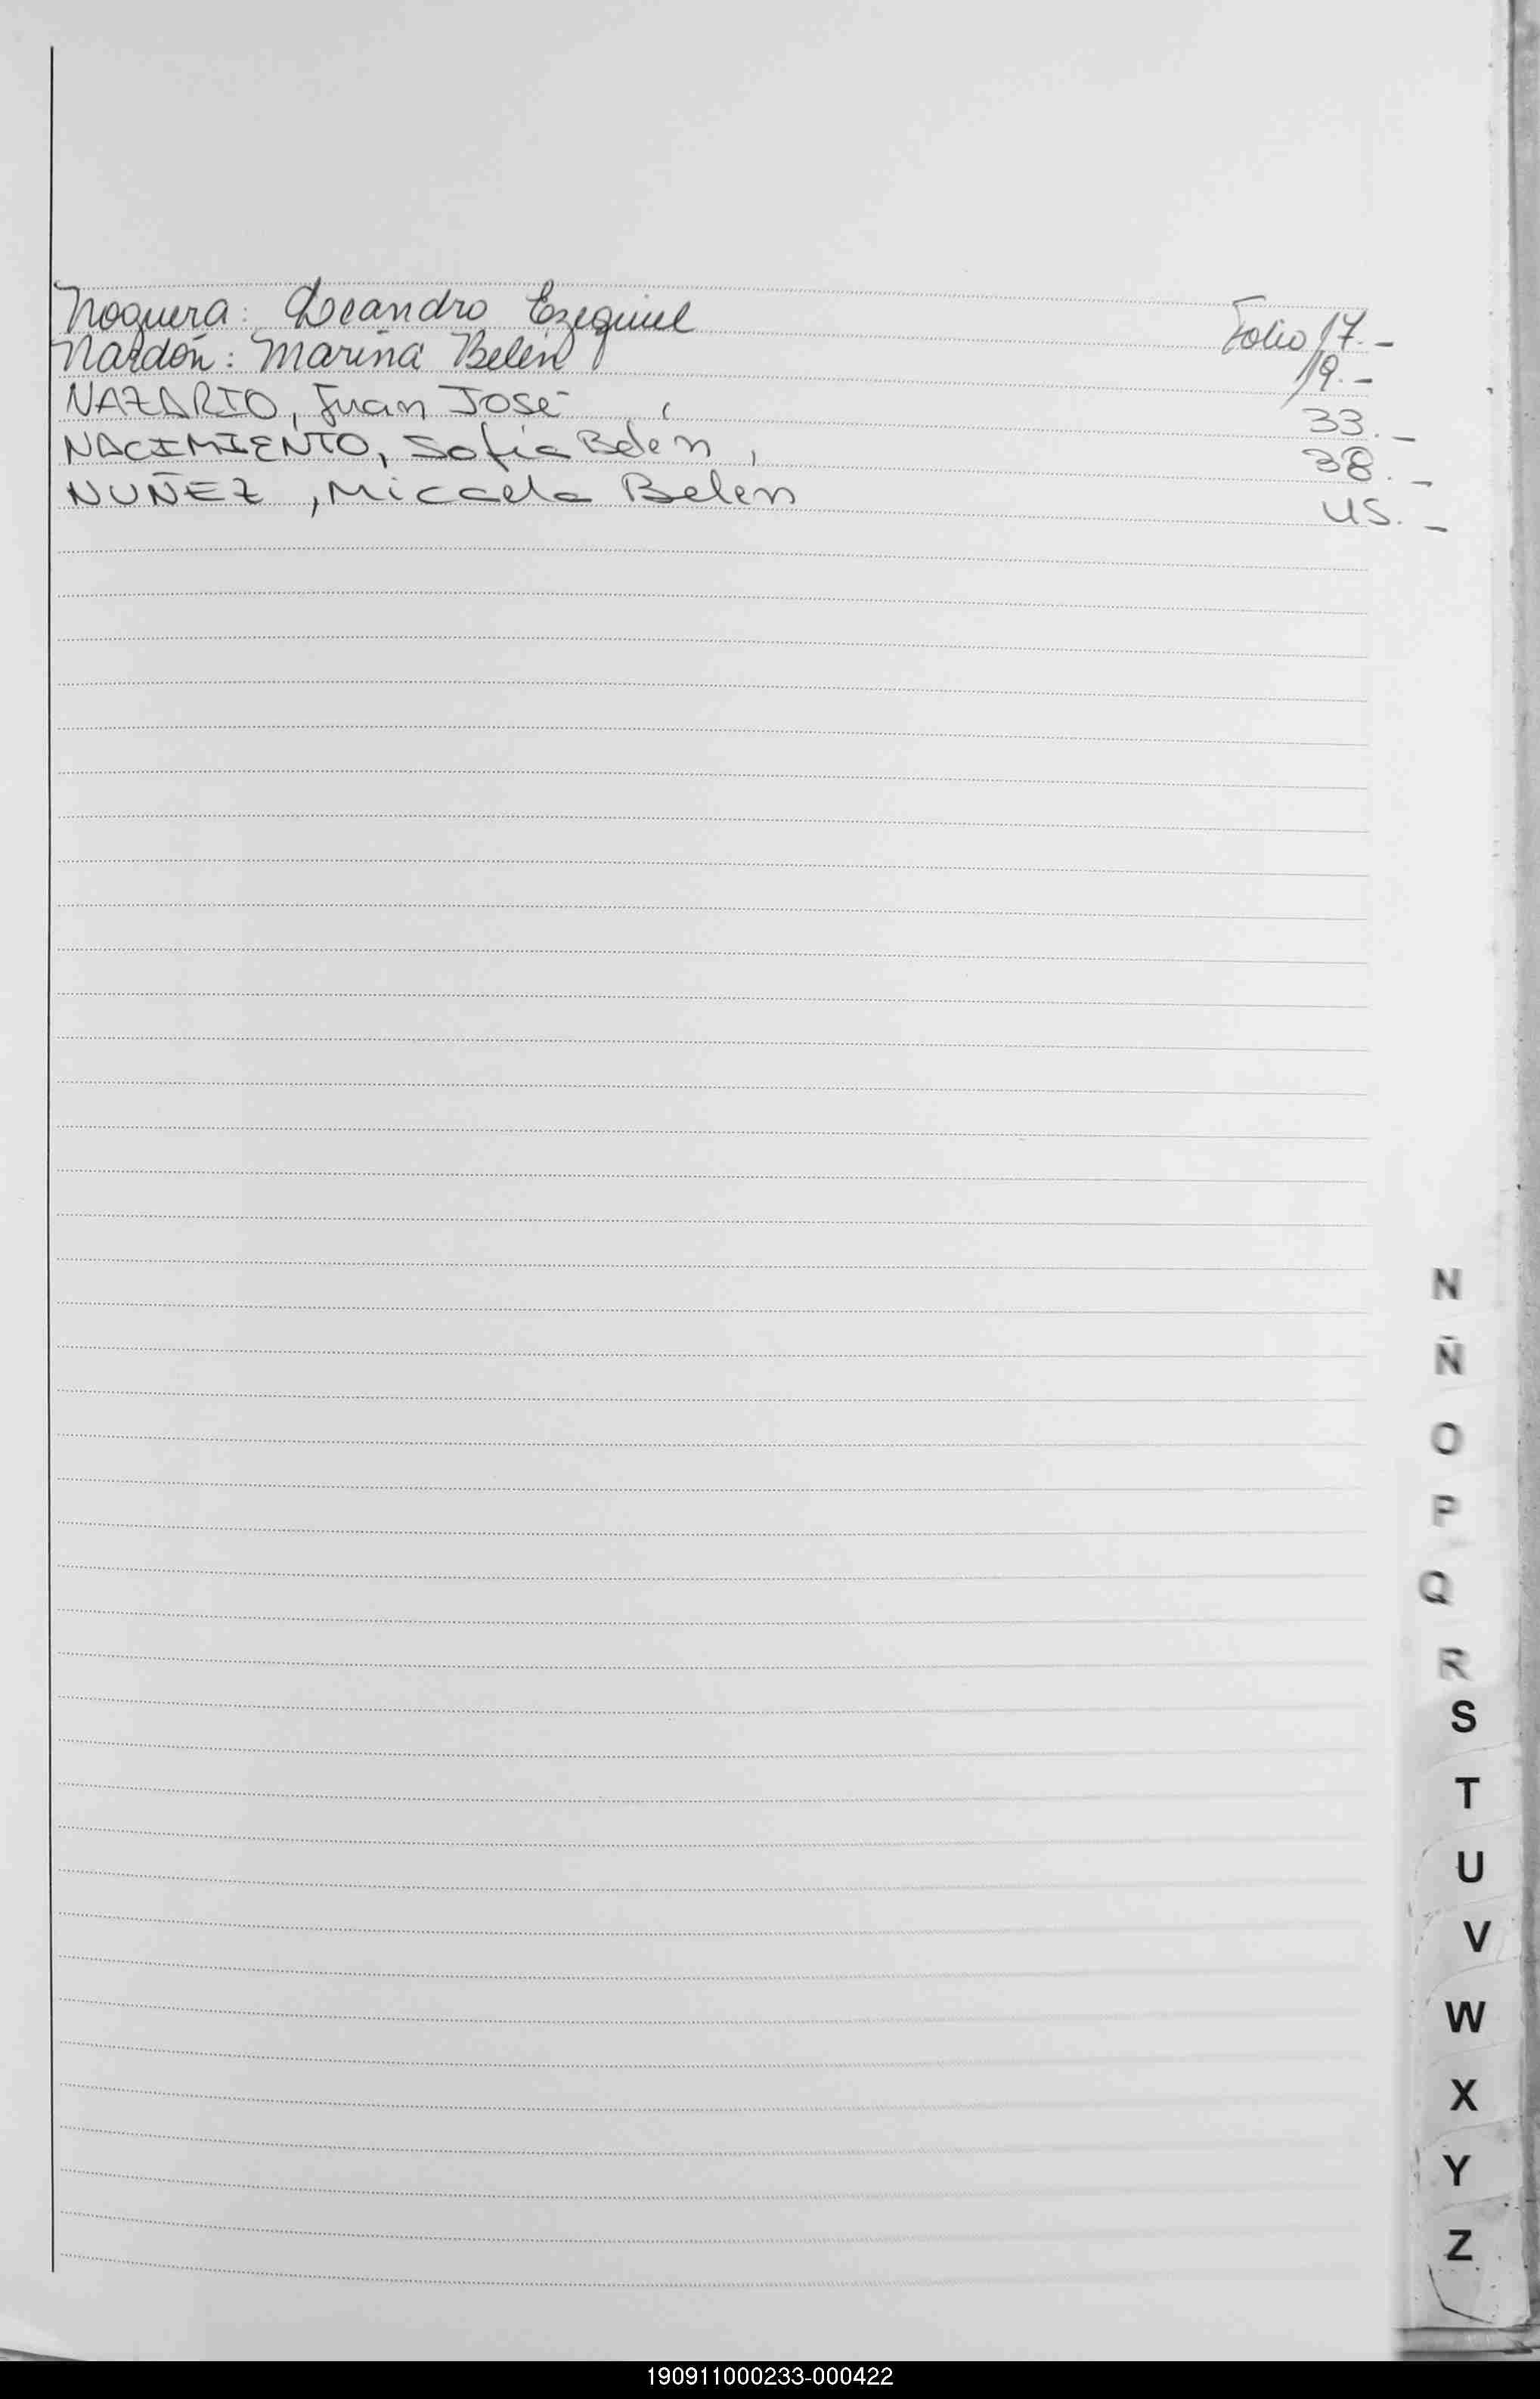 Noguera: Leandro Ezequiel Folio 17.-
Nardón: Marina Belén 19.-
NAZARIO, Juan José 33.-
NACIMIENTO, Sofia Belén, 38.-
NUÑEZ, Micaela Belen 45.-
N
Ñ
O
P
Q
R
S
T
U
V
W
X
Y
Z
190911000233-000422